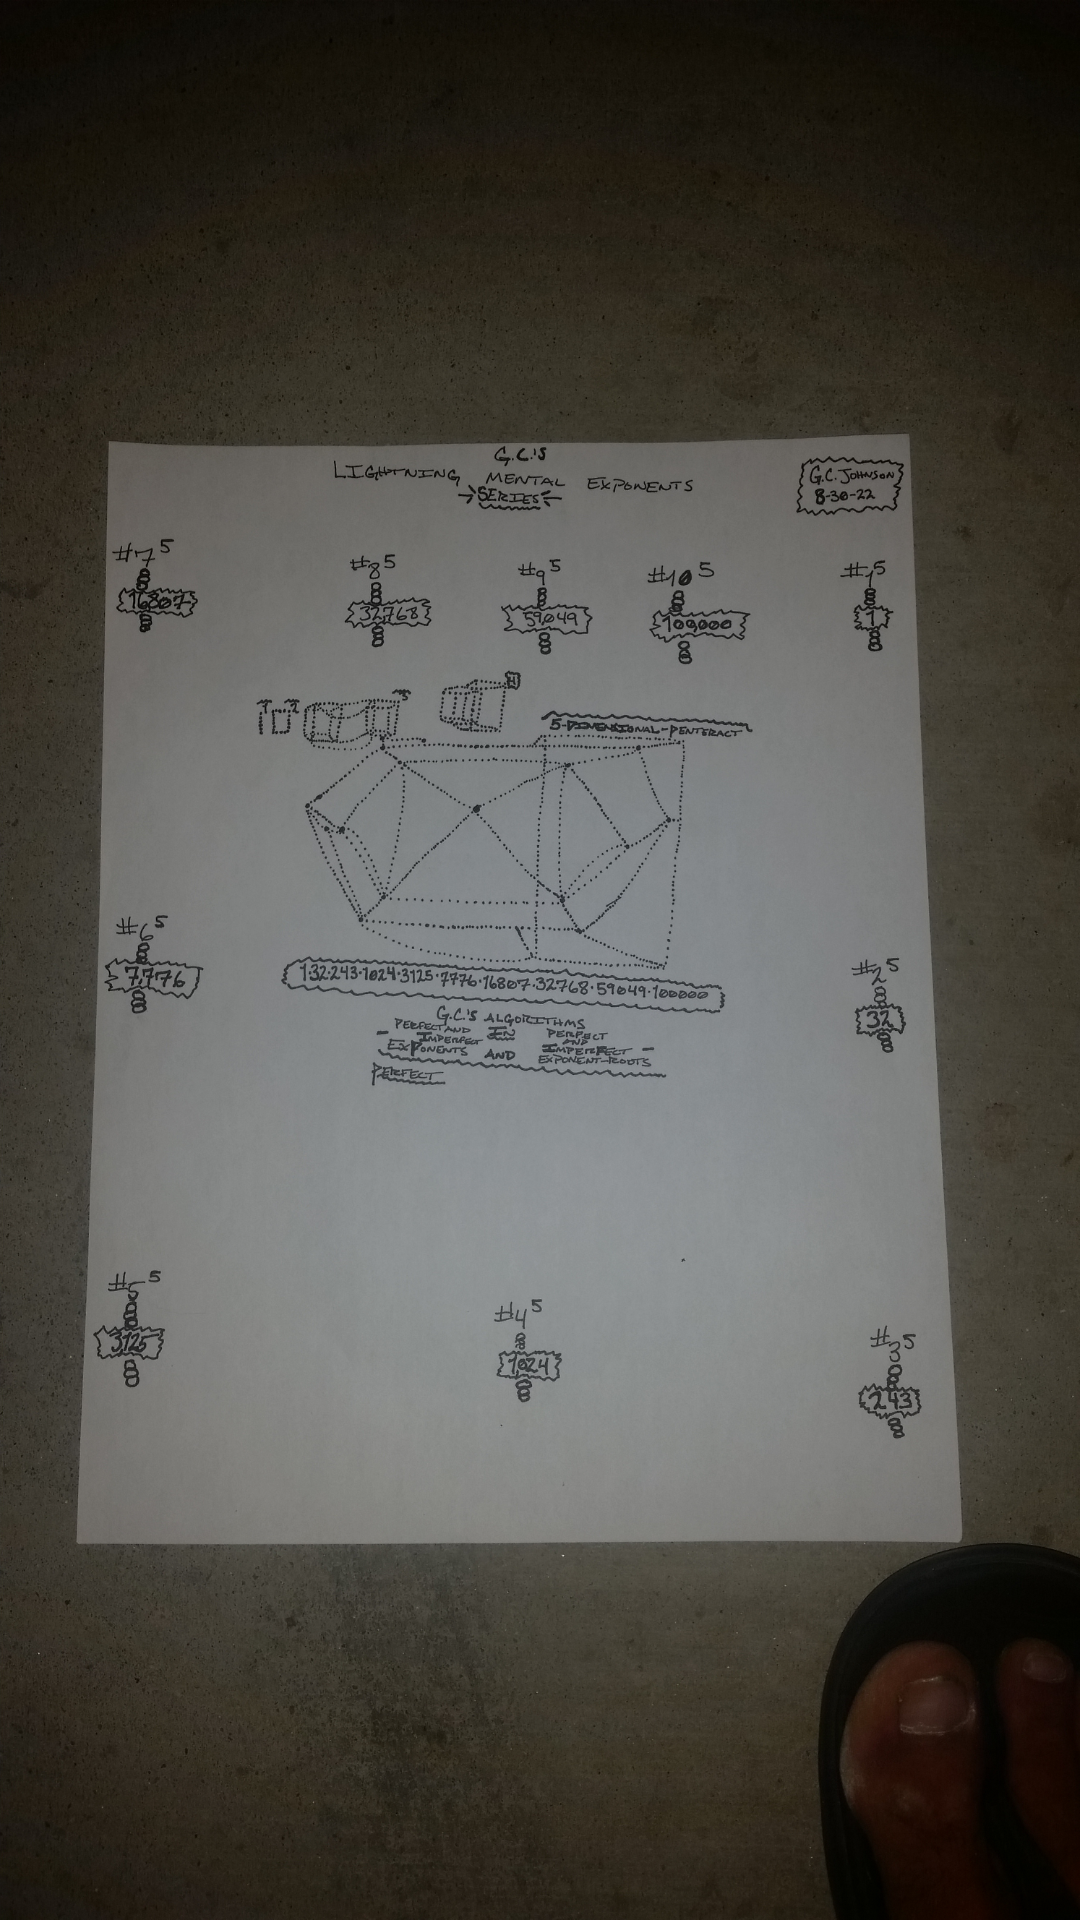 G.C.'S
LIGHTNING MENTAL EXPONENTS
SERIES
G.C. JOHNSON
8-30-22
#7⁵
16807
#8⁵
32,768
#9⁵
59,049
#10⁵
100,000
#1⁵
1
1 2 3
4
5-DIMENSIONAL-PENTERACT
#6⁵
7,776
#2⁵
32
1·32·243·1024·3125·7776·16807·32768·59049·100000
G.C.'S ALGORITHMS
PERFECT AND IMPERFECT EXPONENTS
IN
AND
PERFECT AND IMPERFECT EXPONENT-ROOTS
PERFECT
#5⁵
3125
#4⁵
1024
#3⁵
243